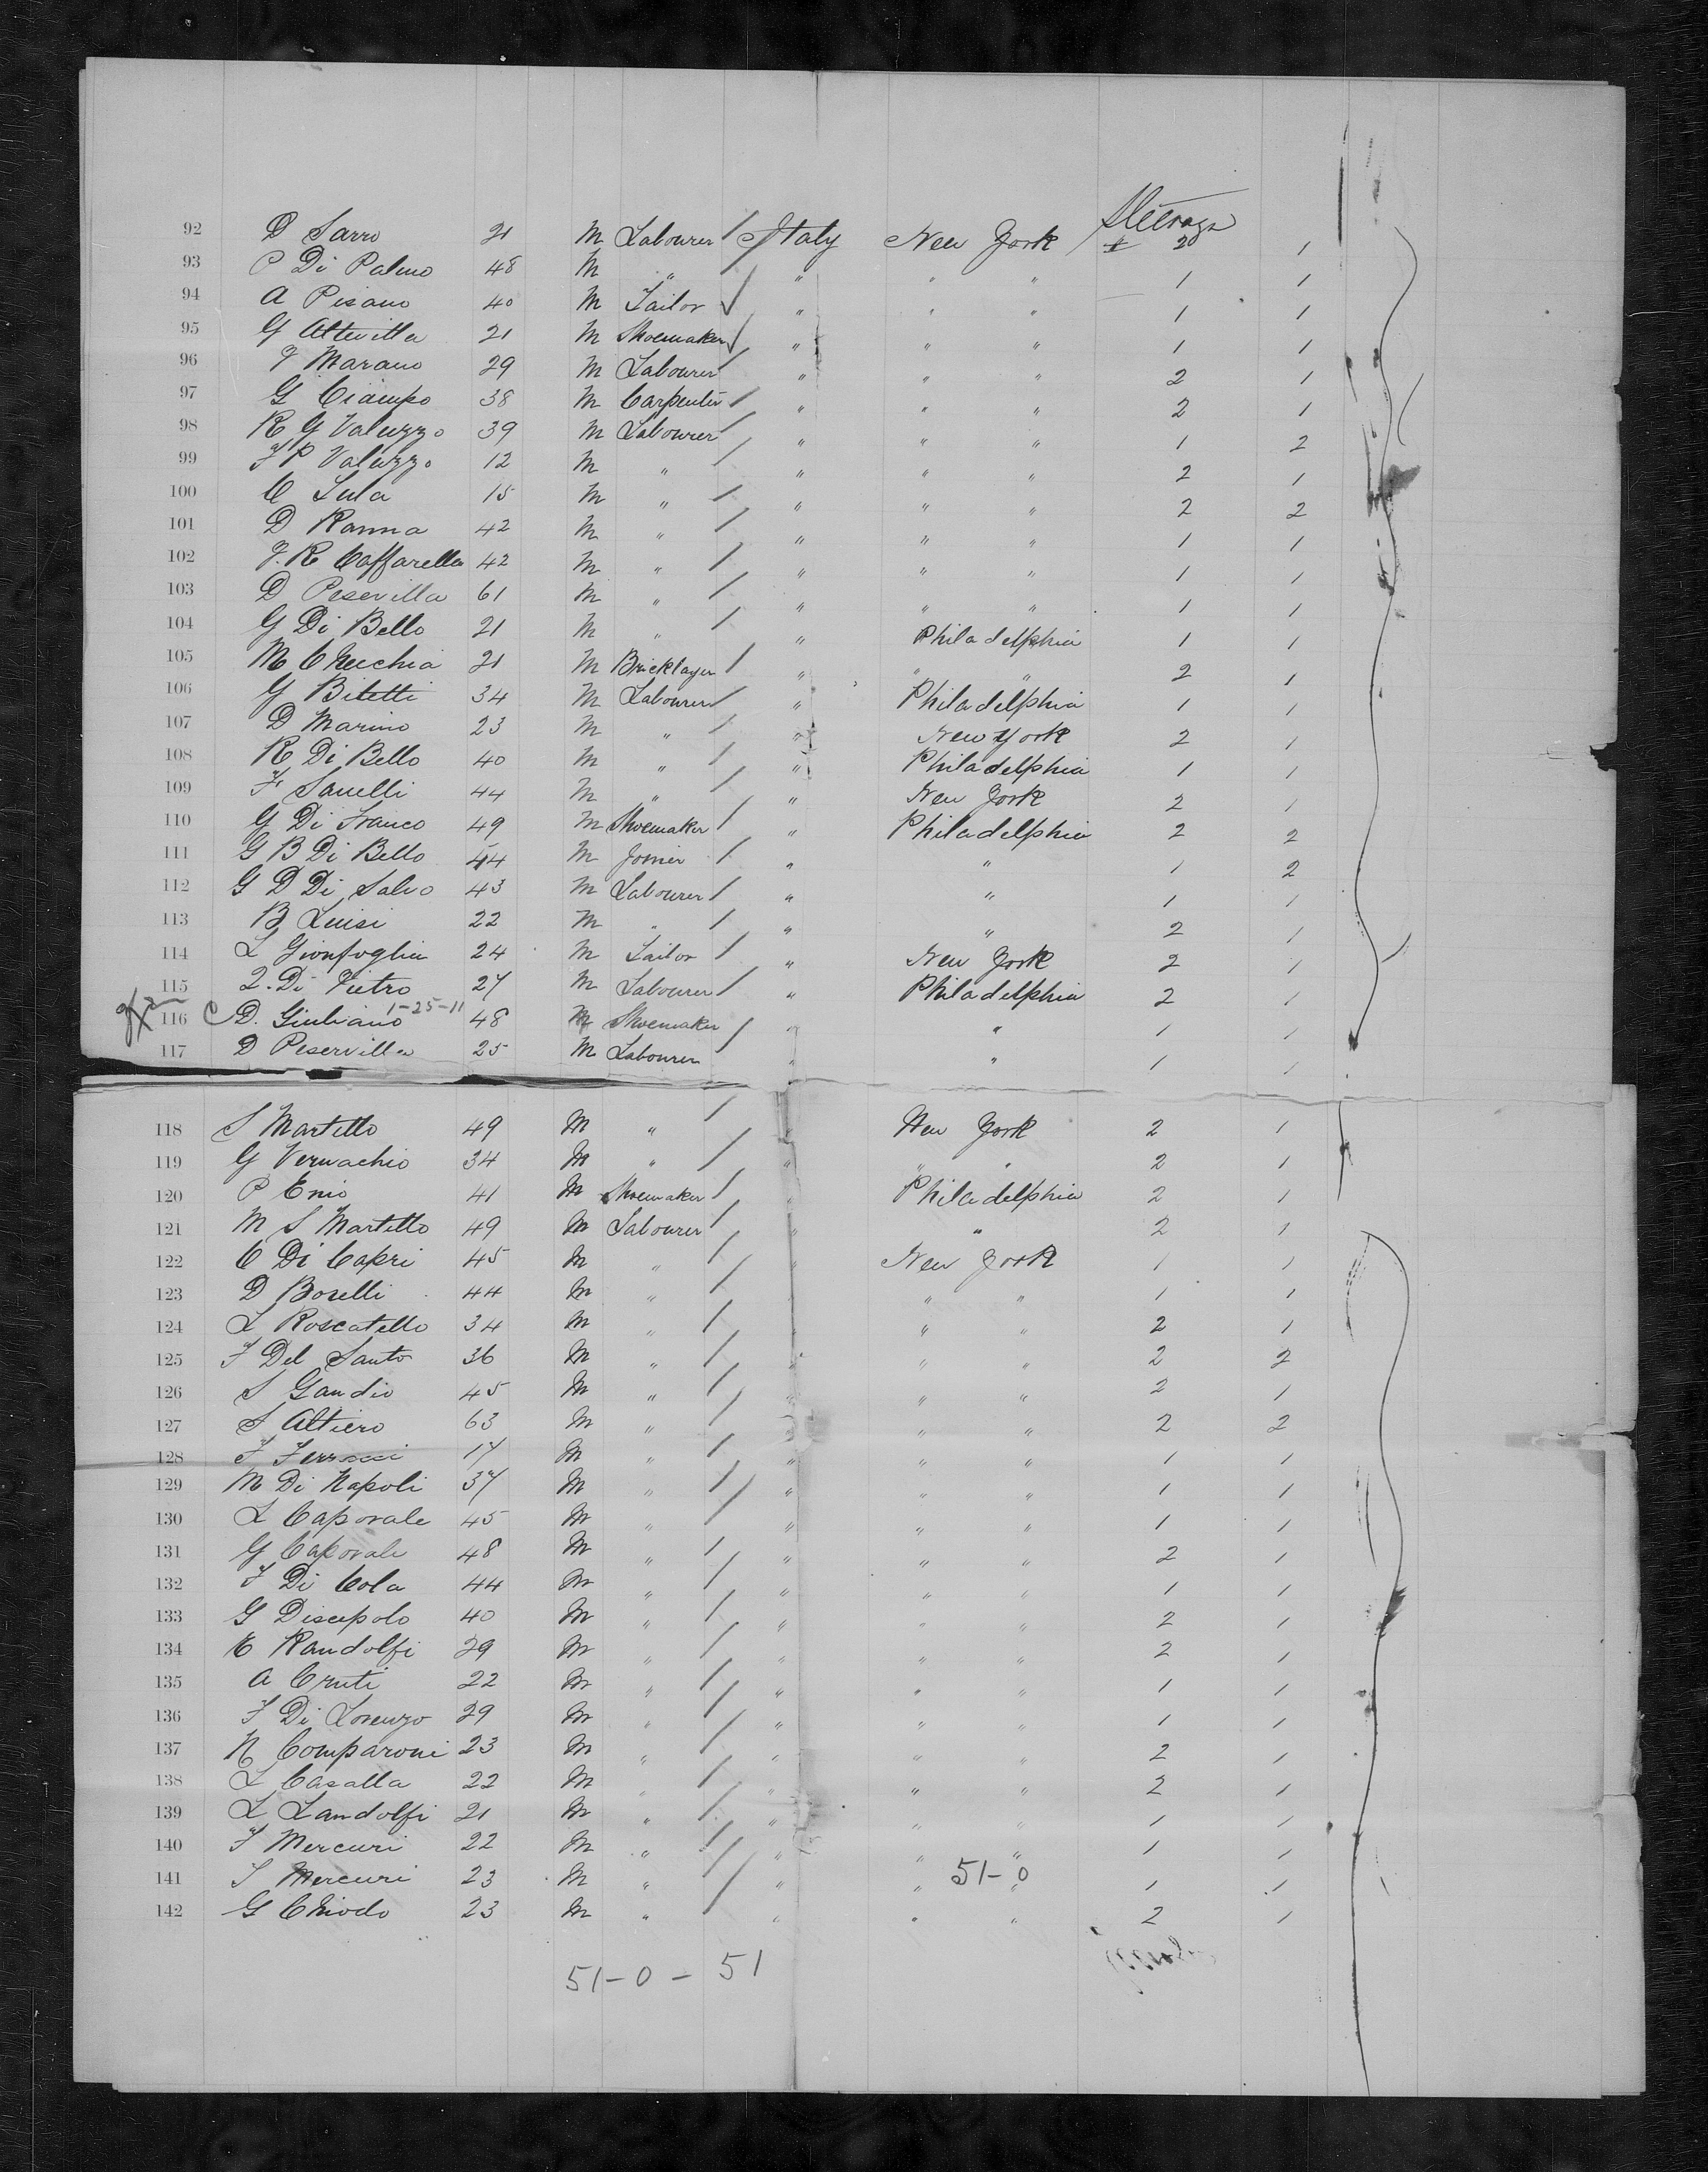 Steerage
92 D Sarro 21 M Labourer / Italy New York 2 1
93 P Di Palmo 48 M " / " " " 1 1
94 A Pisano 40 M Tailor ✓ " " " 1 1
95 G Altevilla 21 M Shoemaker ✓ " " " 1 1
96 F Marano 29 M Labourer / " " " 2 1
97 G Ciampo 38 M Carpenter / " " " 2 1
98 R G Valuzzo 39 M Labourer / " " " 1 2
99 F P Valuzzo 12 M " / " " " 2 1
100 C Lula 15 M " / " " " 2 2
101 D Ranna 42 M " / " " " 1 1
102 F. R Caffarella 42 M " / " " " 1 1
103 D Peservilla 61 M " / " " " 1 1
104 G Di Bello 21 M " / " Philadelphia 1 1
105 M Chechia 21 M Bricklayer / " " " 2 1
106 G Biletti 34 M Labourer / " Philadelphia 1 1
107 D Marino 23 M " / " New York 2 1
108 R Di Bello 40 M " / " Philadelphia 1 1
109 F Sanelli 44 M " / " New York 2 1
110 G Di Franco 49 M Shoemaker / " Philadelphia 2 2
111 G B Di Bello 44 M Joiner / " " 1 2
112 G D Di Salvo 43 M Labourer / " " 1 1
113 B Luisi 22 M " / " " 2 1
114 L Gionfoglia 24 M Tailor / " New York 2 1
115 2. Di Pietro 27 M Labourer / " Philadelphia 2 1
1-25-11
116 C D. Giuliano 48 M Shoemaker / " " 1 1
117 D Peservilla 25 M Labourer " " 1 1
118 S Martello 49 M " / New York 2 1
119 G Vernachio 34 M " / " " " 2 1
120 P Enio 41 M Shoemaker / " Philadelphia 2 1
121 M S Martello 49 M Labourer / " " 2 1
122 C Di Capri 45 M " / " New York 1 1
123 D Boselli 44 M " / " " 1 1
124 L Roscatello 34 M " / " " 2 1
125 F Del Santo 36 M " / " " " 2 2
126 S Gandio 45 M " / " " " 2 1
127 S Altiero 63 M " / " " 2 2
128 F 17 M " / " " " 1 1
129 M Di Napoli 37 M " / " " " 1 1
130 L Caporale 45 M " / " " " 1 1
131 G Caporale 48 M " / " " " 2 1
132 F Di Cola 44 M " / " " " 1 1
133 G Discepolo 40 M " / " " " 2 1
134 C Randolfi 29 M " / " " " 2 1
135 A Cruti 22 M " / " " " 1 1
136 F Di Lorenzo 29 M " / " " " 1 1
137 N Comparoni 23 M " / " " " 2 1
138 L Casalla 22 M " / " " " 2 1
139 L Landolfi 21 M " / " " " 1 1
140 F Mercuri 22 M " / " " " 1 1
51-0
141 S Mercuri 23 M " / " " " 1 1
142 G Chiodo 23 M " / " " " 2 1
51-0-51